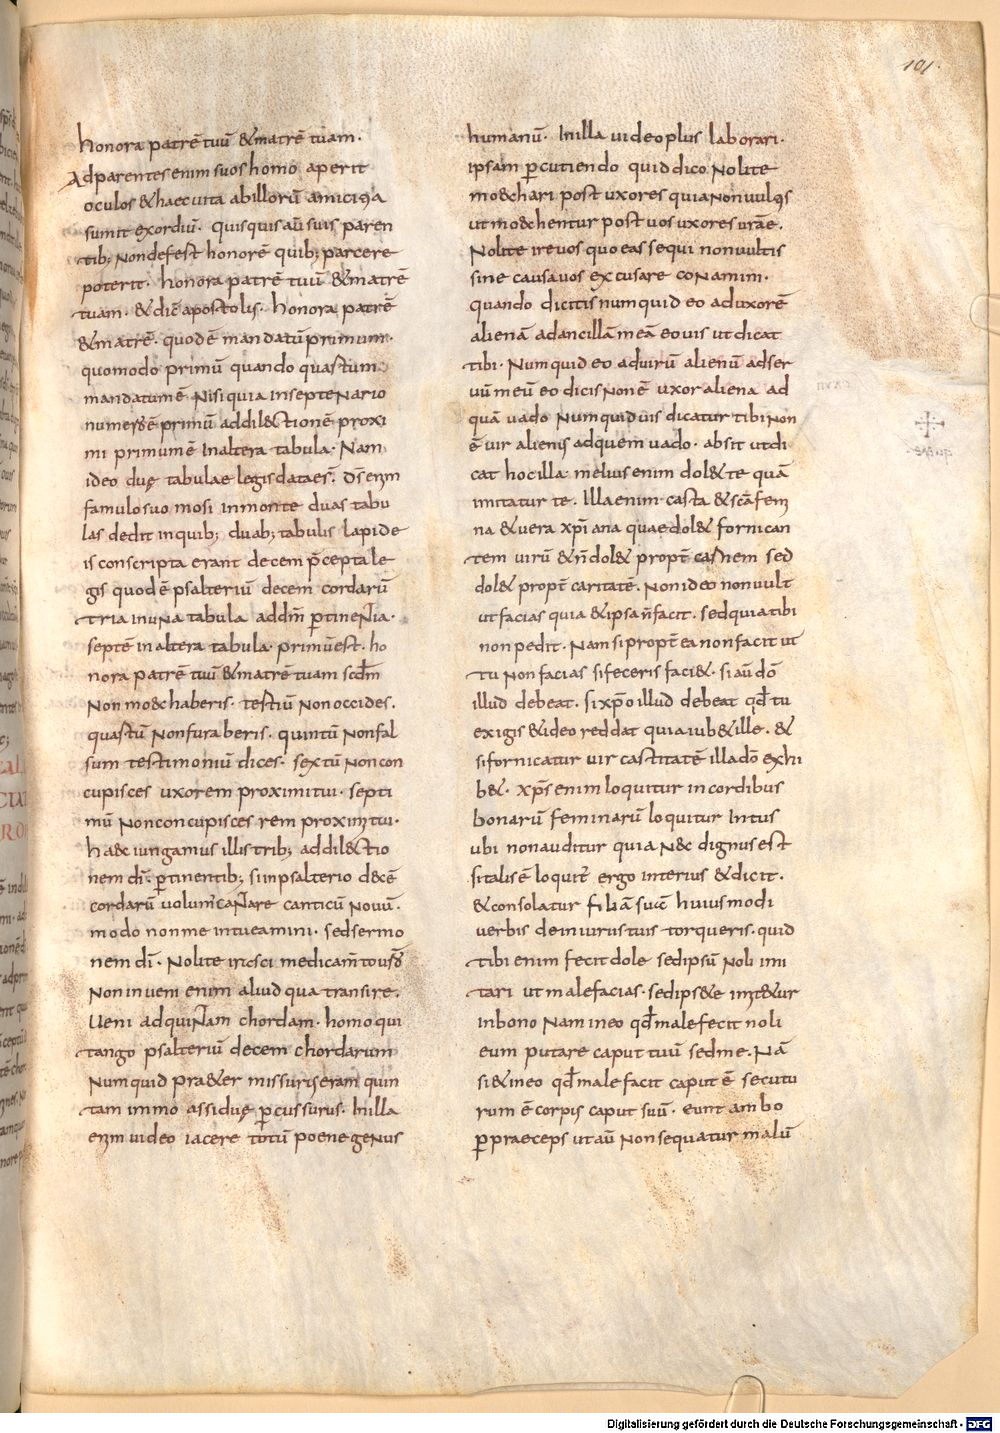 101.
honora patrē tuū & matrē tuam.
Ad parentes enim suos homo aperit
oculos & haec uita ab illorū amicitia
sumit exordiū. quisquis aū suis paren
tib; non defert honorē quib; parcere
poterit. honora patrē tuū & matrē
tuam. & dic̄ apostolis. honora patrē
& matrē. quod ē mandatū primum.
quomodo primū quando quartum
mandatum ē. Nisi quia in septenario
numero ē primū ad dilectionē proxi
mi primum ē In altera tabula. Nam
ideo duę tabulae legis datae s̄. Ds̄ enim
famulo suo mosi in monte duas tabu
las dedit in quib; duab; tabulis lapide
is conscripta erant decem p̄cepta le
gis quod ē psalteriū decem cordarū
tria in una tabula ad dm̄ ꝑtinentia.
septē in altera tabula. primū est. ho
nora patrē tuū & matrē tuam scdm̄
Non moechaberis. tertiū Non occides.
quartū Non furaberis. quintū Non fal
sum testimoniū dices. sextū Non con
cupisces uxorem proximi tui. septi
mū Non concupisces rem proximi tui.
haec iungamus illis trib; ad dilectio
nem dī. ꝑtinentib; si in psalterio decē
cordarū volum; cantare canticū nouū.
modo non me intueamini. sed sermo
nem dī. Nolite irasci medicam̄to uestro
Non inueni enim aliud qua transire.
Ueni ad quintam chordam. homo qui
tango psalteriū decem chordarum
Numquid praeter missurus eram quin
tam immo assiduę ꝑcussurus. In illa
enim uideo iacere totū poene genus
humanū. In illa uideo plus laborari.
ipsam ꝑcutiendo quid dico. Nolite
moechari post uxores quia non uultis
ut moechentur post uos uxores urāe.
Nolite ire uos quo eas sequi non uultis
sine causa uos excusare conamini.
quando dicitis numquid eo ad uxorē
alienā ad ancillā meā eo uis ut dicat
tibi. Numquid eo ad uirū alienū ad ser
uū meū eo dicis Non ē uxor aliena ad
quā uado Numquid uis dicatur tibi non
ē uir alienis ad quem uado. absit ut di
cat hoc illa. melius enim dol& te quā
imitatur te. Illa enim casta & scā femi
na & uera xp̄iana quae dol& fornican
tem uirū & n̄ dol& propt̄ carnem sed
dol& propt̄ caritatē. Non ideo non uult
ut facias quia & ipsa n̄ facit. sed quia tibi
non pedit. Nam si propt̄ ea non facit ut
tu non facias si feceris faci&. si aū dō
illud debeat. si xp̄o illud debeat qđ tu
exigis & ideo reddat quia iub& ille. &
si fornicatur uir castitatē illa dō exhi
b&. xp̄s enim loquitur in cordibus
bonarū feminarū loquitur Intus
ubi non auditur quia nec dignus est
si talis ē loquit̄ ergo interius & dicit.
& consolatur filiā suā huiusmodi
uerbis de iniuriis tuis torqueris. quid
tibi enim fecit dole sed ipsū noli imi
tari ut male facias. sed ipse te imitetur
in bono Nam in eo qđ male fecit noli
eum putare caput tuū sed me. Nā
si & in eo qđ male facit caput ē secutu
rum ē corpus caput suū. eunt ambo
ꝑ praeceps ut aū non sequatur malū
Digitalisierung gefördert durch die Deutsche Forschungsgemeinschaft - DFG